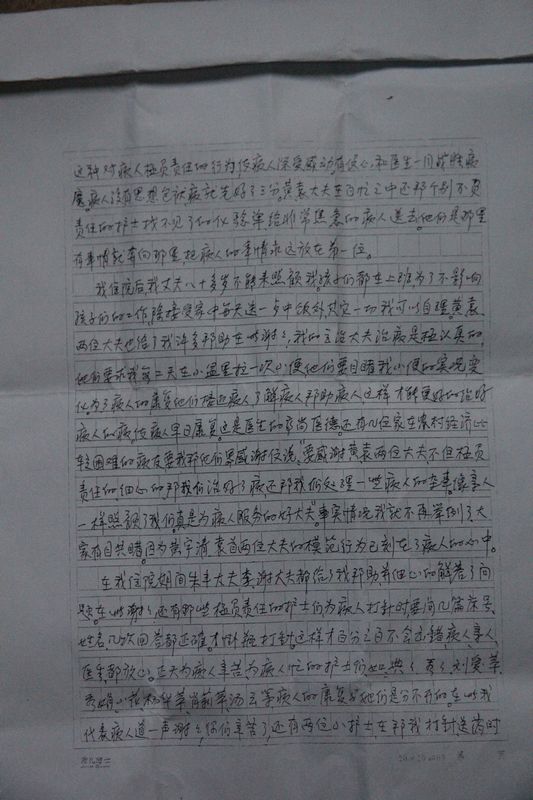 这种对病人极负责任的行为使病人深受感动有信心,和医生一同战胜病
魔。病人没有思想包袱病就先好了三分。黄袁大夫在百忙之中还那个别不负
责任的护士找不见了的化验单给非常焦急的病人送去他们是那里
有事情就奔向那里,把病人的事情永远放在第一位。
我住院后,我丈夫八十多岁不能来照顾我,孩子们都在上班为了不影响
孩子们的工作,除接受家中每天送一点中饭外其它一切我可以自理,黄袁
两位大夫也给了我许多帮助在此谢谢,我的主治大夫治病是极认真的,
他们要求我每二天在小盆里拉一次小便他们要目睹我小便的实况变
化。为了病人的康复他们接近病人了解病人帮助病人这样才能更好的治好
病人的病,使病人早日康复。这是医生的高尚医德。还有几位家在农村经济比
较困难的病友要我帮他们写感谢信说,“要感谢黄袁两位大夫不但极负
责任的,细心的帮我们治好了病还帮我们处理一些病人的杂事像亲人
一样照顾了我们真是为病人服务的好大夫”。事实情况我就不再举例了,大
家有目共睹。因为黄宇清 袁首两位大夫的模范行为已刻在了病人的心中。
在我住院期间朱丰大夫李、谢大夫都给了我帮助并细心的解答了问
题在此谢谢,还有那些极负责任的护士们为病人打针时要问几篇床号
姓名,几次回答都正确才以输瓶打针。这样才百分之百不会出错,病人、亲人、
医生都放心。在天为病人辛苦为病人忙的护士们如:典、秀、刘爱苹
秀娟、小花、杨华苹、肖莉苹、汤云等病人的康复与她们是分不开的。在此我
代表病人道一声谢谢,你们辛苦了,还有两位小护士在帮我打针送药时